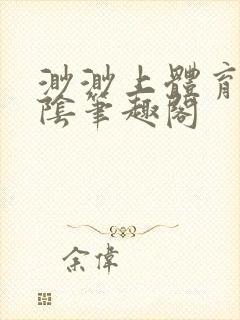 渺渺上體育
陰筆趣閣
余偉